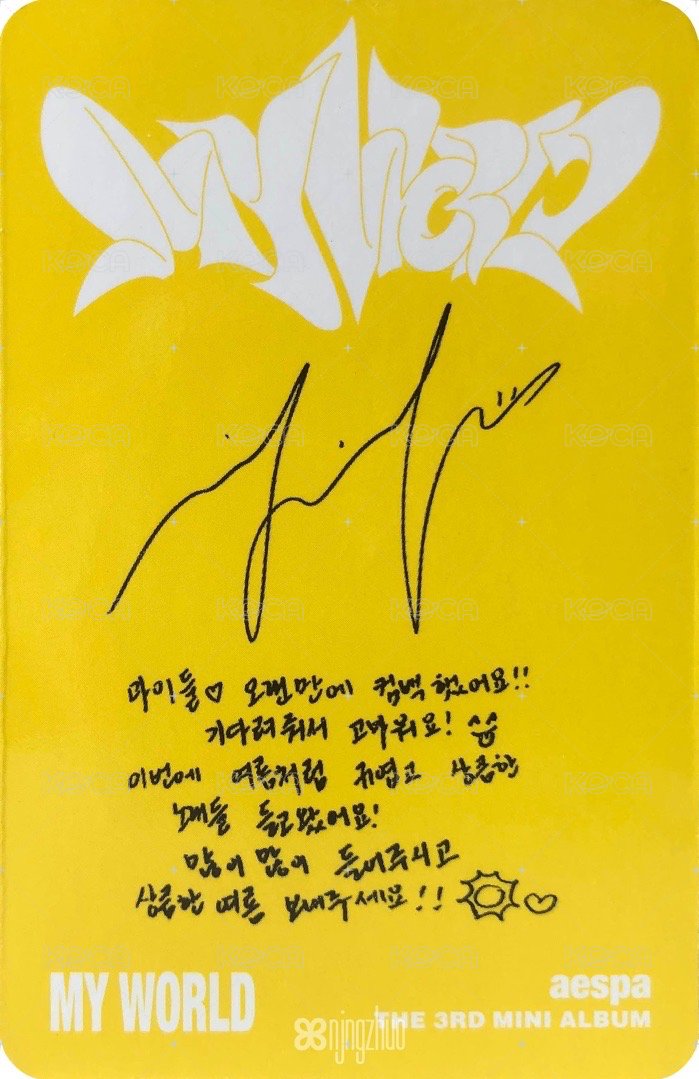 MY WORLD
마이들♡ 오랜만에 컴백 했어요!!
기다려줘서 고마워요!
이번에 여름처럼 귀엽고 상큼한
노래들 들고왔어요!
많이 많이 들어주시고
상큼한 여름 보내주세요!!
MY WORLD
aespa
THE 3RD MINI ALBUM
njngzhuo
KOCA